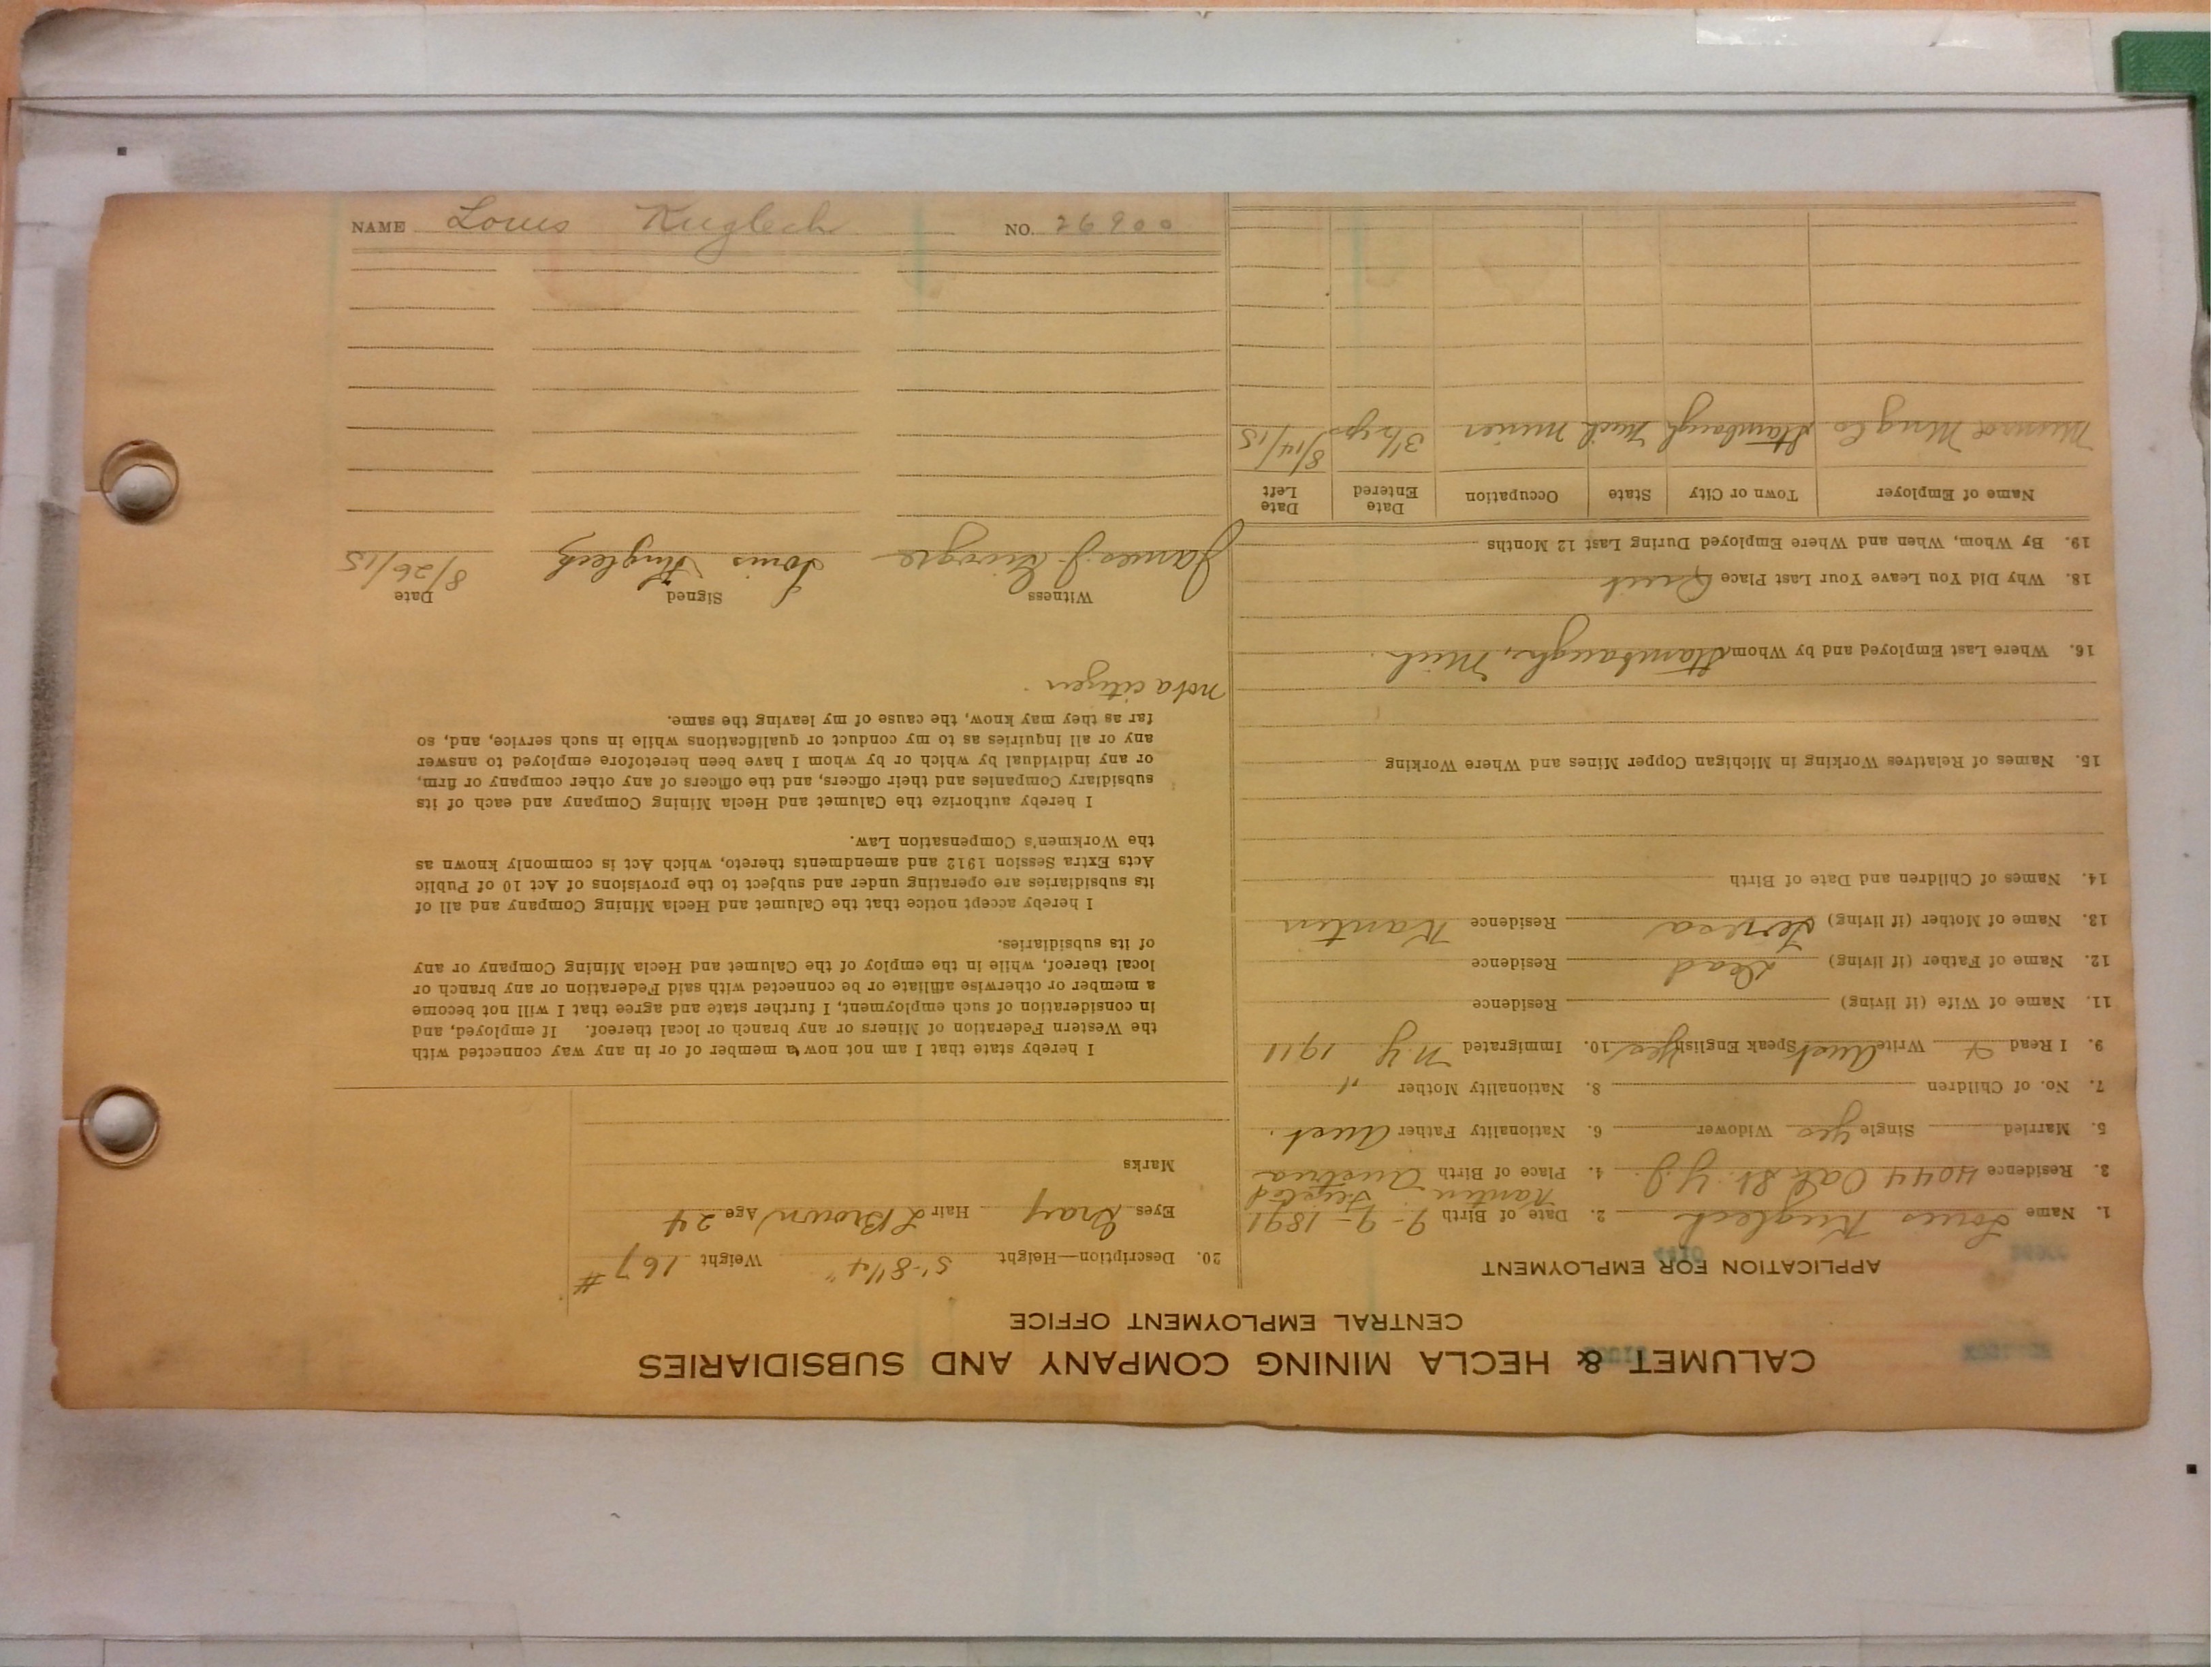 CALUMET & HECLA MINING COMPANY AND SUBSIDIARIES
CENTRAL EMPLOYMENT OFFICE
APPLICATION FOR EMPLOYMENT
1. Name Louis Kuglech 2. Date of Birth 9-9-1891
3. Residence 4044 Oak St. Y.J. 4. Place of Birth Austria
5. Married Single yes Widower 6. Nationality Father Aust.
7. No. of Children 8. Nationality Mother "
9. I Read & Write Aust Speak English Yes 10. Immigrated N.Y. 1911
11. Name of Wife (if living) Residence
12. Name of Father (if living) Dead Residence
13. Name of Mother (if living) Teresa Residence Kanten
14. Names of Children and Date of Birth
15. Names of Relatives Working in Michigan Copper Mines and Where Working
16. Where Last Employed and by Whom Stambaugh, Mich.
18. Why Did You Leave Your Last Place Quit
19. By Whom, When and Where Employed During Last 12 Months
Name of Employer Town or City State Occupation Date Entered Date Left
Munroe Mng Co Stambaugh Mich miner 3 1/2 yrs 8/14/15
20. Description—Height 5'-8 1/4" Weight 167#
Eyes Gray Hair L Brown Age 24
Marks
I hereby state that I am not now a member of or in any way connected with
the Western Federation of Miners or any branch or local thereof. If employed, and
in consideration of such employment, I further state and agree that I will not become
a member or otherwise affiliate or be connected with said Federation or any branch or
local thereof, while in the employ of the Calumet and Hecla Mining Company or any
of its subsidiaries.
I hereby accept notice that the Calumet and Hecla Mining Company and all of
its subsidiaries are operating under and subject to the provisions of Act 10 of Public
Acts Extra Session 1912 and amendments thereto, which Act is commonly known as
the Workmen's Compensation Law.
I hereby authorize the Calumet and Hecla Mining Company and each of its
subsidiary Companies and their officers, and the officers of any other company or firm,
or any individual by which or by whom I have been heretofore employed to answer
any or all inquiries as to my conduct or qualifications while in such service, and, so
far as they may know, the cause of my leaving the same.
not a citizen.
Witness Signed Date
James J. Louis Kuglech 8/26/15
NAME Louis Kuglech NO. 26900